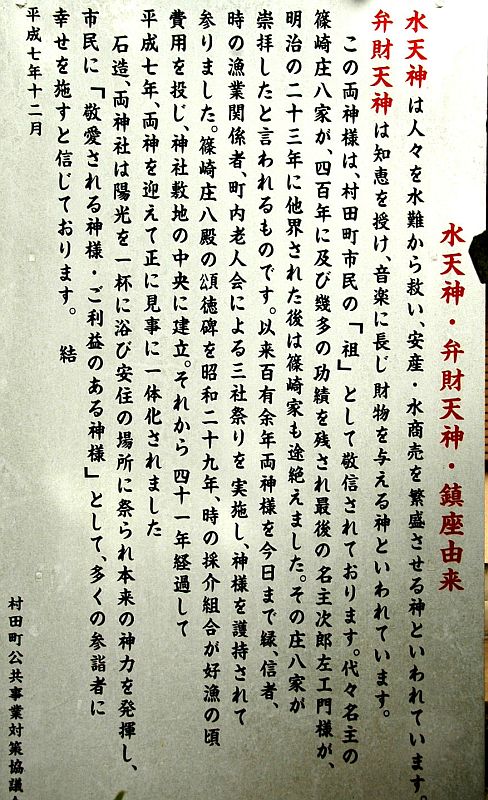 水天神・弁財天神・鎮座由来
水天神は人々を水難から救い、安産・水商売を繁盛させる神といわれています。
弁財天神は知恵を授け、音楽に長じ財物を与える神といわれています。
この両神様は、村田町市民の「祖」として敬信されております。代々名主の
篠崎庄八家が、四百年に及び幾多の功績を残され最後の名主次郎左エ門様が、
明治の二十三年に他界された後は篠崎家も途絶えました。その庄八家が
崇拝したと言われるものです。以来百有余年両神様を今日まで縁、信者、
時の漁業関係者、町内老人会による三社祭りを実施し、神様を護持されて
参りました。篠崎庄八殿の頌徳碑を昭和二十九年、時の採介組合が好漁の頃
費用を投じ、神社敷地の中央に建立。それから四十一年経過して
平成七年、両神を迎えて正に見事に一体化されました
石造、両神社は陽光を一杯に浴び安住の場所に祭られ本来の神力を発揮し、
市民に「敬愛される神様・ご利益のある神様」として、多くの参詣者に
幸せを施すと信じております。 結
平成七年十二月
村田町公共事業対策協議会